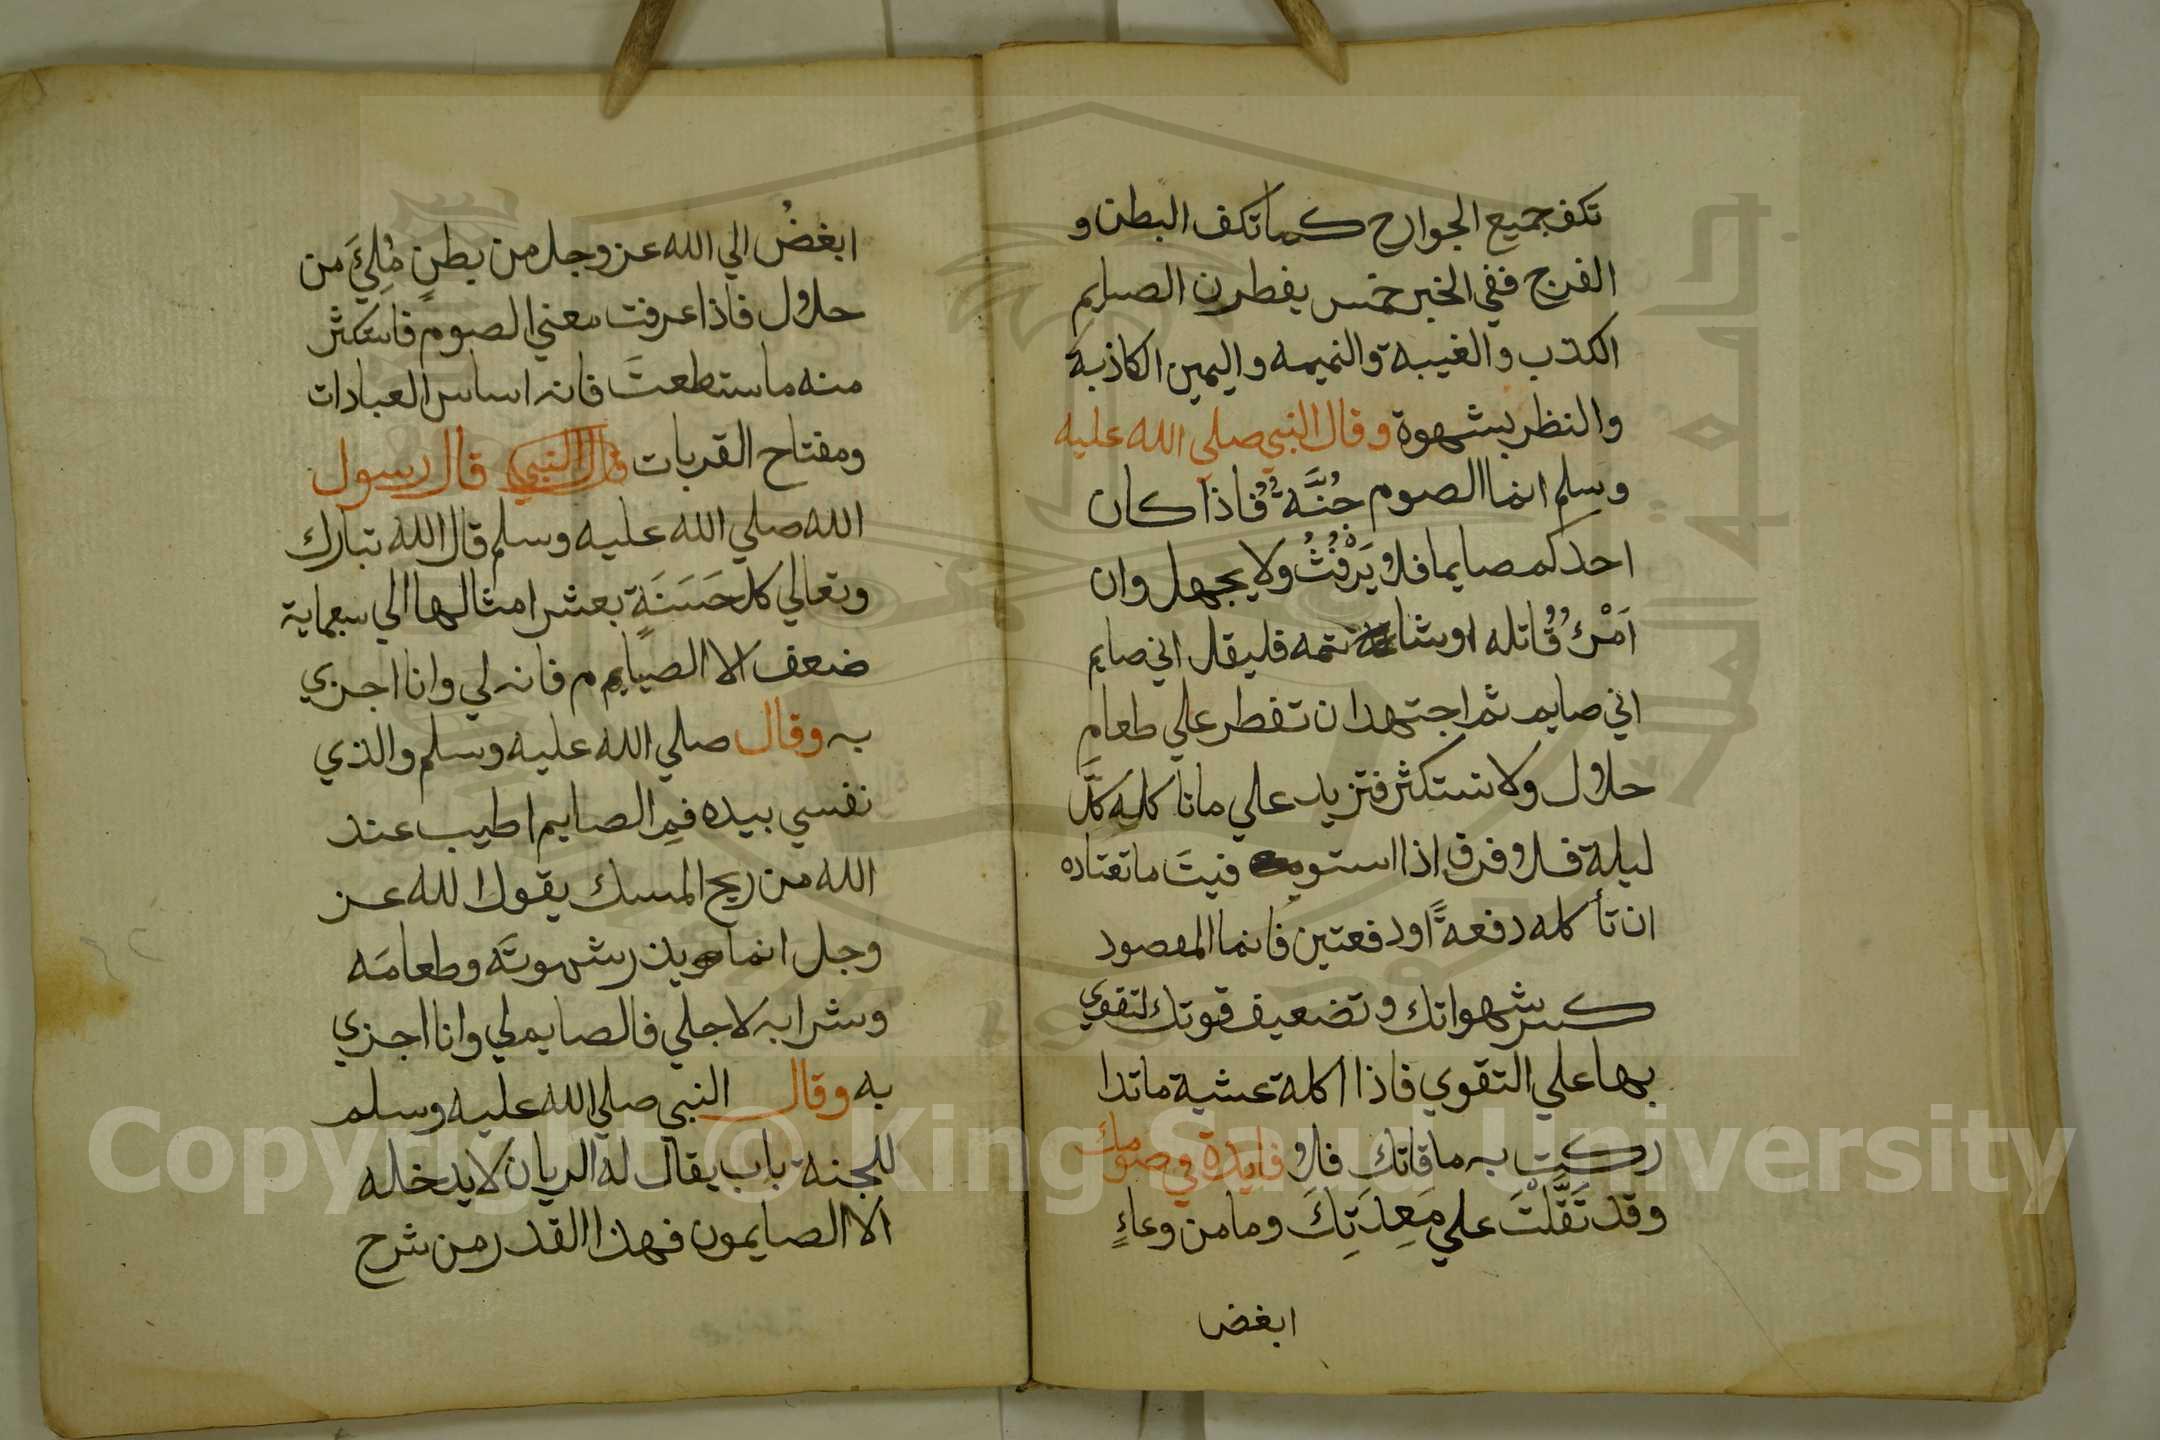 تكف جميع الجوارح كما تكف البطن و
الفرج ففي الخبر خمس يفطرن الصايم
الكذب والغيبة والنميمه واليمين الكاذبة
والنظر بشهوة وقال النبي صلي الله عليه
وسلم انما الصوم جُنَّةٌ فاذا كان
احدكم صايما فلا يَرْفُثُ ولا يجهل وان
اَمْرُؤٌ قاتله اوشاتمه فليقل اني صايم
اني صايم ثم اجتهد ان تفطر علي طعام
حلال ولا تستكثر فتزيد علي ما تاكله كلَّ
ليلة فلا فرق اذا استوفيتَ ما تعتاده
ان تأكله دفعةً او دفعتين فانما المقصود
كسر شهواتك وتضعيف قوتك لتقوي
بها علي التقوي فاذا اكلة عشية ما تدا
ركت به ما فاتك فلا فايدة في صومك
وقد ثَقَّلْتَ علي مَعِدَتِكَ وما من وعاءٍ
ابغض
ابغضُ الي الله عز وجل من بطنٍ مُلِئَ من
حلال فاذا عرفت معني الصوم فاستكثر
منه ما ستطعتَ فانه اساس العبادات
ومفتاح القربات قال النبي قال رسول
الله صلي الله عليه وسلم قال الله تبارك
وتعالي كل حَسَنَةٍ بعشر امثالها الي سبعماية
ضعف الا الصيام فانه لي وانا اجزي
به وقال صلي الله عليه وسلم والذي
نفسي بيده فم الصايم اطيب عند
الله من ريح المسك يقول الله عز
وجل انما يذر شهوتَه وطعامَه
وشرابه لاجلي فالصايم لي وانا اجزي
به وقال النبي صلي الله عليه وسلم
للجنة باب يقال له الريان لا يدخله
الا الصايمون فهذا القدر من شرح
Copyright © King Saud University